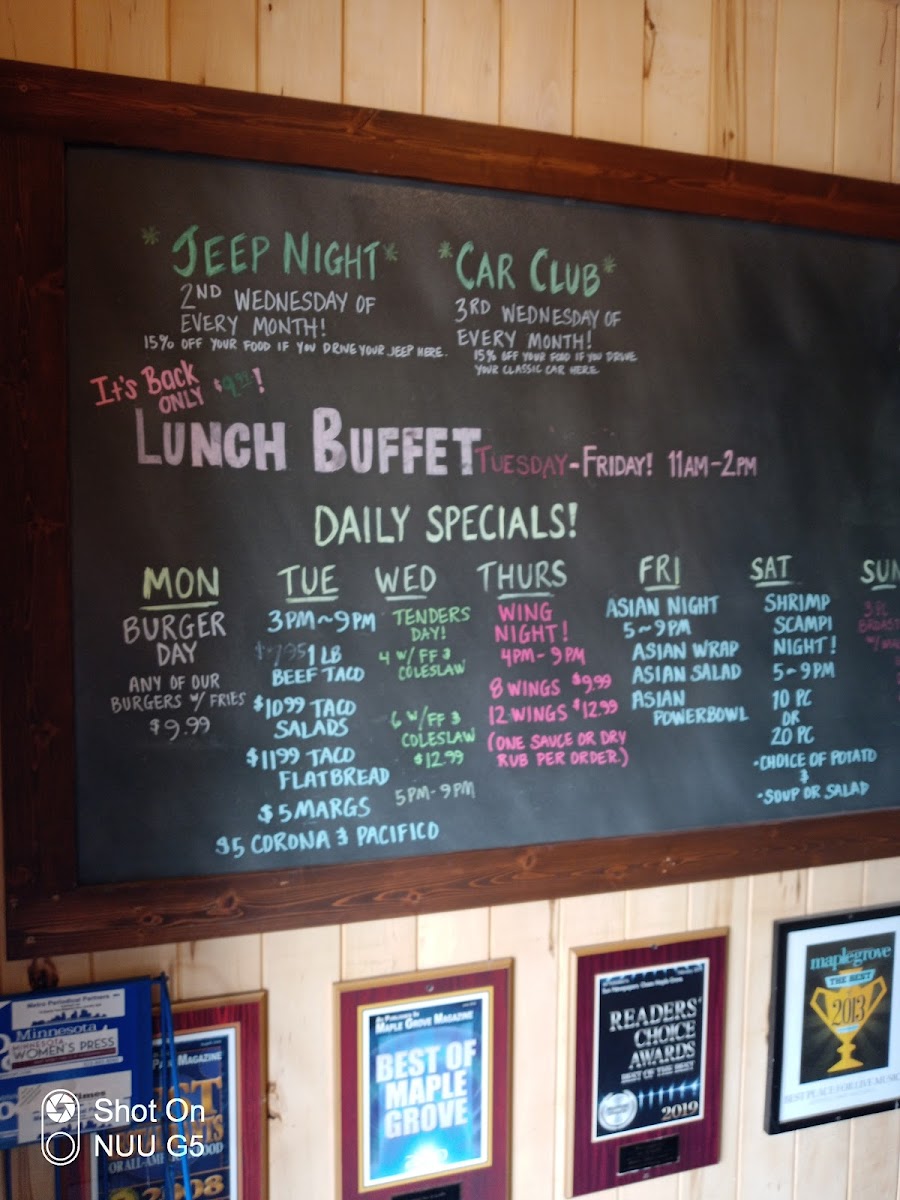 *JEEP NIGHT*
2ND WEDNESDAY OF
EVERY MONTH!
15% OFF YOUR FOOD IF YOU DRIVE YOUR JEEP HERE.
*CAR CLUB*
3RD WEDNESDAY OF
EVERY MONTH!
15% OFF YOUR FOOD IF YOU DRIVE
YOUR CLASSIC CAR HERE.
It's Back
ONLY $9.99!
LUNCH BUFFET TUESDAY-FRIDAY! 11AM-2PM
DAILY SPECIALS!
MON
BURGER
DAY
ANY OF OUR
BURGERS W/ FRIES
$9.99
TUE
3PM~9PM
$7.95 1 LB
BEEF TACO
$10.99 TACO
SALADS
$11.99 TACO
FLATBREAD
$5 MARGS
$5 CORONA & PACIFICO
WED
TENDERS
DAY!
4 W/FF &
COLESLAW
6 W/FF &
COLESLAW
$12.99
5PM-9PM
THURS
WING
NIGHT!
4PM-9PM
8 WINGS $9.99
12 WINGS $12.99
(ONE SAUCE OR DRY
RUB PER ORDER.)
FRI
ASIAN NIGHT
5~9PM
ASIAN WRAP
ASIAN SALAD
ASIAN
POWERBOWL
SAT
SHRIMP
SCAMPI
NIGHT!
5~9PM
10 PC
OR
20 PC
•CHOICE OF POTATO
&
•SOUP OR SALAD
SUN
3 PC
Metro Periodical Partners
Minnesota
MINNESOTA
WOMEN'S PRESS
MAGAZINE
2008
MAPLE GROVE MAGAZINE
BEST OF
MAPLE
GROVE
READERS'
CHOICE
AWARDS
BEST OF THE BEST
2019
maplegrove
THE BEST
2013
BEST PLACE FOR LIVE MUSIC
Shot On
NUU G5